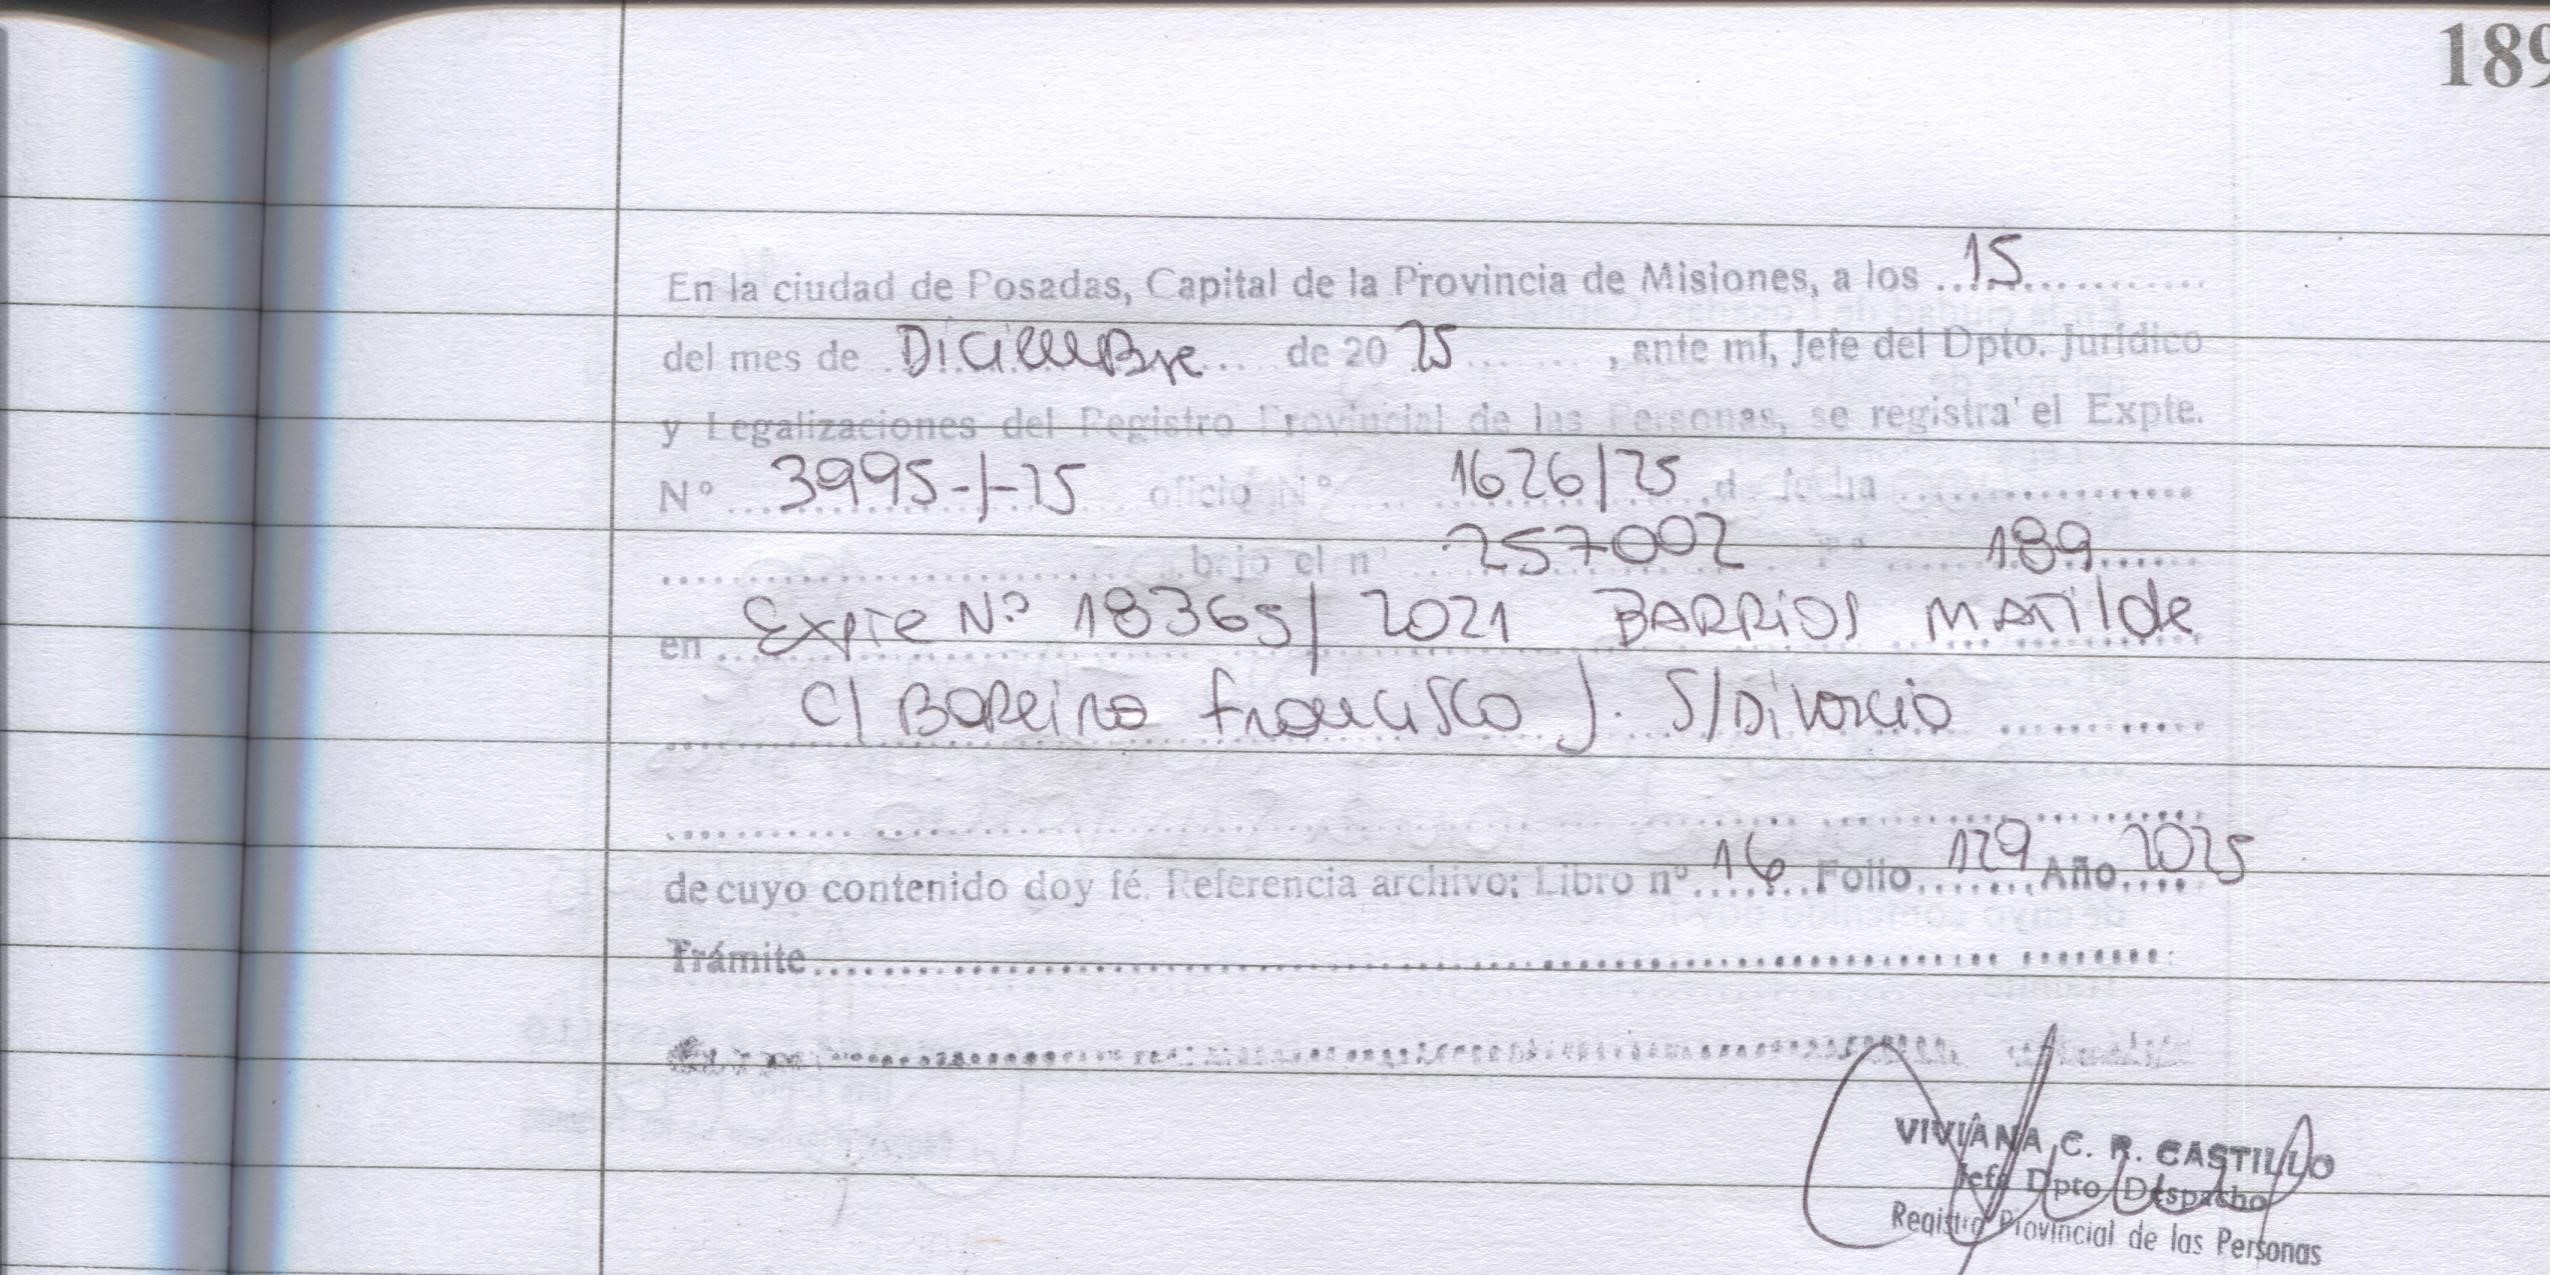 189
En la ciudad de Posadas, Capital de la Provincia de Misiones, a los 15
del mes de Diciembre de 20 25, ante mí, Jefe del Dpto. Jurídico
y Legalizaciones del Registro Provincial de las Personas, se registra el Expte.
Nº 3995-/-25 oficio Nº 1626/25 de fecha
bajo el nº 257002 Fº 189
en Expte Nº 18365/2021 BARRIOS MATilde
C/ BOREiRO francisco J. S/Divorcio
de cuyo contenido doy fé. Referencia archivo: Libro nº 16 Folio 129 Año 2025
Trámite
VIVIANA C. R. CASTILLO
Jefe Dpto Despacho
Registro Provincial de las Personas